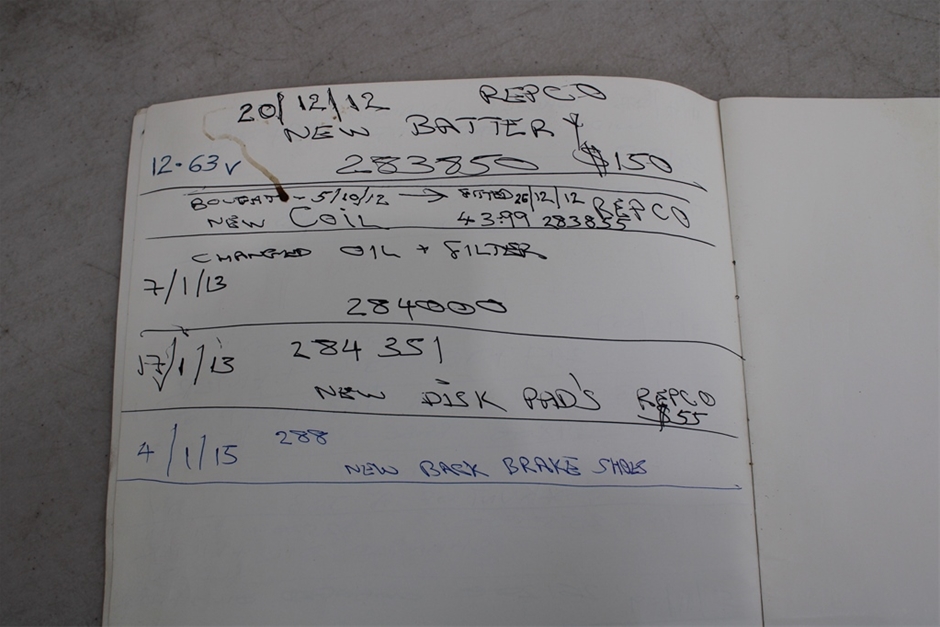 20/12/12 REPCO
NEW BATTERY
12.63v 283850 $150
BOUGHT - 5/10/12 → FITTED 26/12/12 REPCO
NEW COIL 43.99 283855
CHANGED OIL + FILTER
7/1/13
284000
17/1/13 284 351
NEW DISK PAD'S REPCO
$55
4/1/15 288
NEW BACK BRAKE SHOES